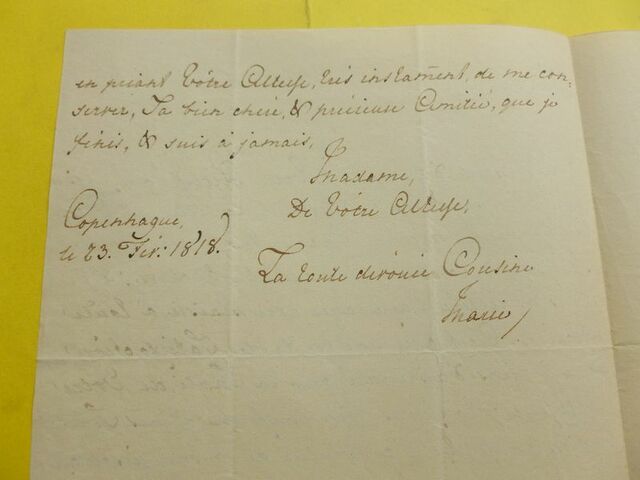 en priant Vôtre Altesse, très instam̃ent, de me con-
server, Sa bien chère, & précieuse Amitié, que je
finis, & suis à jamais,
Madame,
De Vôtre Altesse,
Copenhague,
le 23. Fév: 1818.
La toute dévouée Cousine
Marie